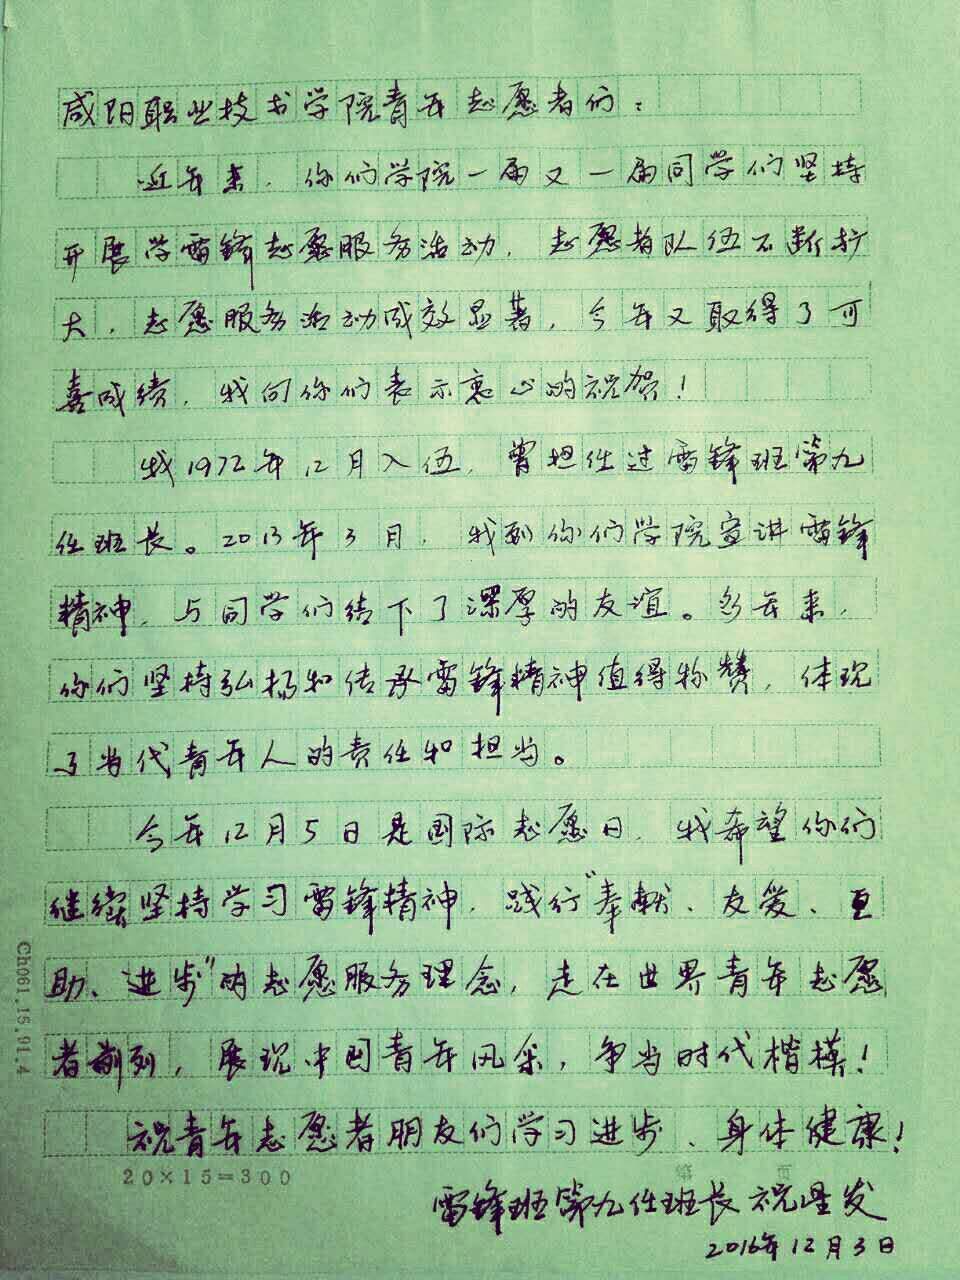 咸阳职业技术学院青年志愿者们：
近年来，你们学院一届又一届同学们坚持
开展学雷锋志愿服务活动，志愿者队伍不断扩
大，志愿服务活动成效显著，今年又取得了可
喜成绩，我向你们表示衷心的祝贺！
我1972年12月入伍，曾担任过雷锋班第九
任班长。2013年3月，我到你们学院宣讲雷锋
精神，与同学们结下了深厚的友谊。多年来，
你们坚持弘扬和传承雷锋精神值得称赞，体现
了当代青年人的责任和担当。
今年12月5日是国际志愿日，我希望你们
继续坚持学习雷锋精神，践行“奉献、友爱、互
助、进步”的志愿服务理念，走在世界青年志愿
者前列，展现中国青年风采，争当时代楷模！
祝青年志愿者朋友们学习进步、身体健康！
20×15=300 第 页
雷锋班第九任班长 祝星发
2016年12月3日
Ch061.15.91.4